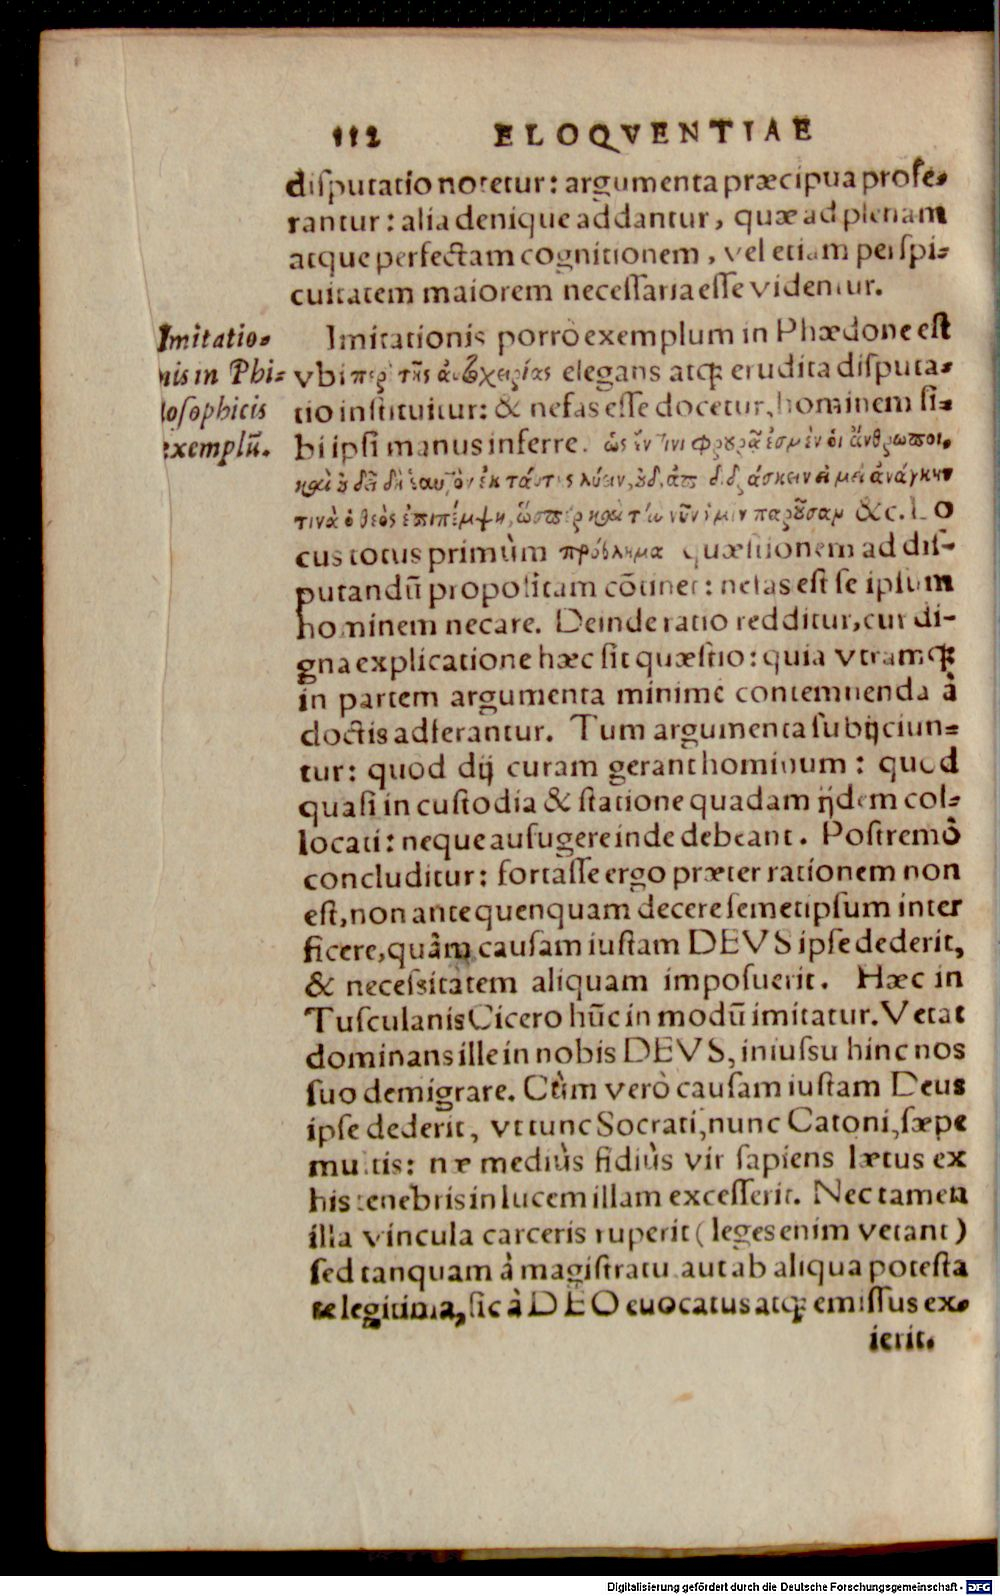 112 ELOQVENTIAE
disputatio notetur: argumenta præcipua profe-
rantur: alia denique addantur, quæ ad plenam
atque perfectam cognitionem, vel etiam perspi-
cuitatem maiorem necessaria esse videntur.
Imitatio-
nis in Phi-
losophicis
exemplū.
Imitationis porrò exemplum in Phædone est
vbi περὶ τῆς αὐτοχειρίας elegans atq; erudita disputa-
tio instituitur: & nefas esse docetur, hominem si-
bi ipsi manus inferre. ὡς ἔν τινι φρουρᾷ ἐσμὲν οἱ ἄνθρωποι,
καὶ οὐ δεῖ δὴ ἑαυτὸν ἐκ ταύτης λύειν, οὐδ' ἀποδιδράσκειν εἰ μὴ ἀνάγκην
τινὰ ὁ θεὸς ἐπιπέμψῃ, ὥσπερ καὶ τὴν νῦν ἡμῖν παροῦσαν &c. LO
cus totus primùm πρόβλημα quæstionem ad dis-
putandū propositam cōtinet: nefas est se ipsum
hominem necare. Deinde ratio redditur, cur di-
gna explicatione hæc sit quæstio: quia vtramq;
in partem argumenta minimè contemnenda à
doctis adferantur. Tum argumenta subijciun-
tur: quòd dij curam gerant hominum: quod
quasi in custodia & statione quadam ijdem col-
locati: neque aufugere inde debeant. Postremò
concluditur: fortasse ergo præter rationem non
est, non ante quenquam decere semetipsum inter
ficere, quàm causam iustam DEVS ipse dederit,
& necessitatem aliquam imposuerit. Hæc in
Tusculanis Cicero hūc in modū imitatur. Vetat
dominans ille in nobis DEVS, iniussu hinc nos
suo demigrare. Cùm verò causam iustam Deus
ipse dederit, vt tunc Socrati, nunc Catoni, sæpe
multis: næ mediùs fidiùs vir sapiens lætus ex
his tenebris in lucem illam excesserit. Nec tamen
illa vincula carceris ruperit (leges enim vetant)
sed tanquam à magistratu aut ab aliqua potesta
te legitima, sic à DEO euocatus atq; emissus ex-
ierit.
Digitalisierung gefördert durch die Deutsche Forschungsgemeinschaft - DFG